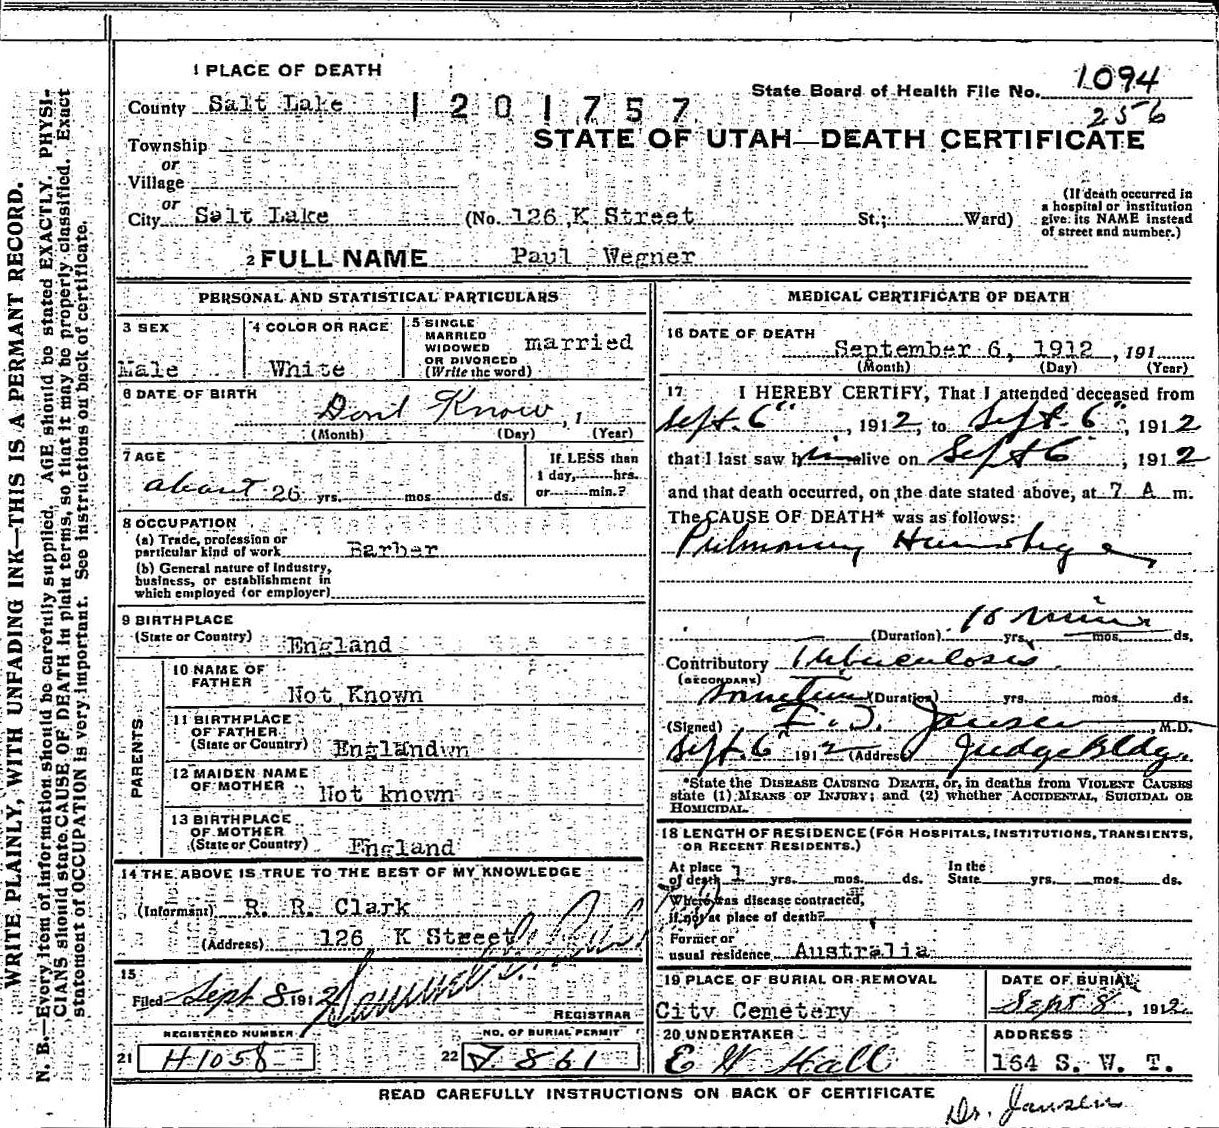 WRITE PLAINLY, WITH UNFADING INK—THIS IS A PERMANT RECORD.
N. B.—Every item of information should be carefully supplied. AGE should be stated EXACTLY. PHYSI-
CIANS should state CAUSE OF DEATH in plain terms, so that it may be properly classified. Exact
statement of OCCUPATION is very important. See instructions on back of certificate.
1 PLACE OF DEATH
County Salt Lake
1201757
State Board of Health File No. 1094
256
STATE OF UTAH—DEATH CERTIFICATE
Township
or
Village
or
City Salt Lake (No. 126 K Street St.; Ward)
(If death occurred in
a hospital or institution
give its NAME instead
of street and number.)
2 FULL NAME Paul Wegner
PERSONAL AND STATISTICAL PARTICULARS
3 SEX
Male
4 COLOR OR RACE
White
5 SINGLE
MARRIED
WIDOWED
OR DIVORCED
(Write the word)
married
6 DATE OF BIRTH
Dont Know, 1
(Month) (Day) (Year)
7 AGE
about 26 yrs. mos. ds.
If LESS than
1 day, hrs.
or min.?
8 OCCUPATION
(a) Trade, profession or
particular kind of work Barber
(b) General nature of industry,
business, or establishment in
which employed (or employer)
9 BIRTHPLACE
(State or Country) England
PARENTS
10 NAME OF
FATHER Not Known
11 BIRTHPLACE
OF FATHER
(State or Country) Englandwn
12 MAIDEN NAME
OF MOTHER Not known
13 BIRTHPLACE
OF MOTHER
(State or Country) England
14 THE ABOVE IS TRUE TO THE BEST OF MY KNOWLEDGE
(Informant) R. R. Clark
(Address) 126 K Street
15
Filed Sept 8 1912
REGISTRAR
REGISTERED NUMBER
21 H1058
NO. OF BURIAL PERMIT
22 J. 861
MEDICAL CERTIFICATE OF DEATH
16 DATE OF DEATH
September 6, 1912, 191
(Month) (Day) (Year)
17 I HEREBY CERTIFY, That I attended deceased from
Sept. 6", 1912, to Sept. 6", 1912
that I last saw him alive on Sept 6, 1912
and that death occurred, on the date stated above, at 7 A m.
The CAUSE OF DEATH* was as follows:
Pulmonary
(Duration) yrs. mos. ds.
Contributory Tuberculosis
(SECONDARY)
sometime (Duration) yrs. mos. ds.
(Signed) Jansen M.D.
Sept. 6" 1912 (Address) Judge Bldg.
*State the DISEASE CAUSING DEATH, or, in deaths from VIOLENT CAUSES
state (1) MEANS OF INJURY; and (2) whether ACCIDENTAL, SUICIDAL OR
HOMICIDAL.
18 LENGTH OF RESIDENCE (FOR HOSPITALS, INSTITUTIONS, TRANSIENTS,
OR RECENT RESIDENTS.)
At place
of death yrs. mos. ds.
In the
State yrs. mos. ds.
Where was disease contracted,
if not at place of death?
Former or
usual residence Australia
19 PLACE OF BURIAL OR REMOVAL
City Cemetery
DATE OF BURIAL
Sept 8, 1912
20 UNDERTAKER
E W Hall
ADDRESS
164 S. W. T.
READ CAREFULLY INSTRUCTIONS ON BACK OF CERTIFICATE
Dr. Jansen